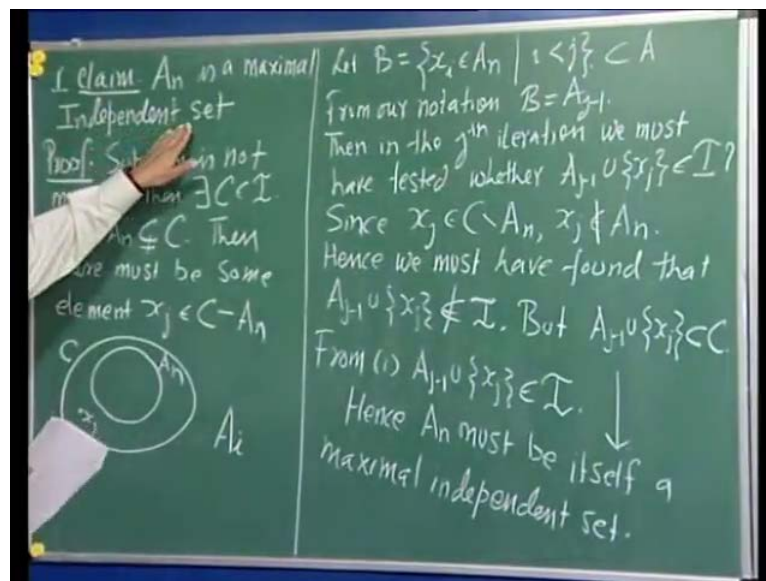 I claim An is a maximal
Independent set
Proof: is not
then ∃C∈I.
An ⊊ C. Then
must be some
element xj ∈ C - An
C
An
xj
Ai
Let B = {xi ∈ An | i < j}. ⊂ A
From our notation B = Aj-1.
Then in the jth iteration we must
have tested whether Aj-1 ∪ {xj} ∈ I?
Since xj ∈ C \ An, xj ∉ An.
Hence we must have found that
Aj-1 ∪ {xj} ∉ I. But Aj-1 ∪ {xj} ⊂ C
From (1) Aj-1 ∪ {xj} ∈ I.
Hence An must be itself a
maximal independent set.